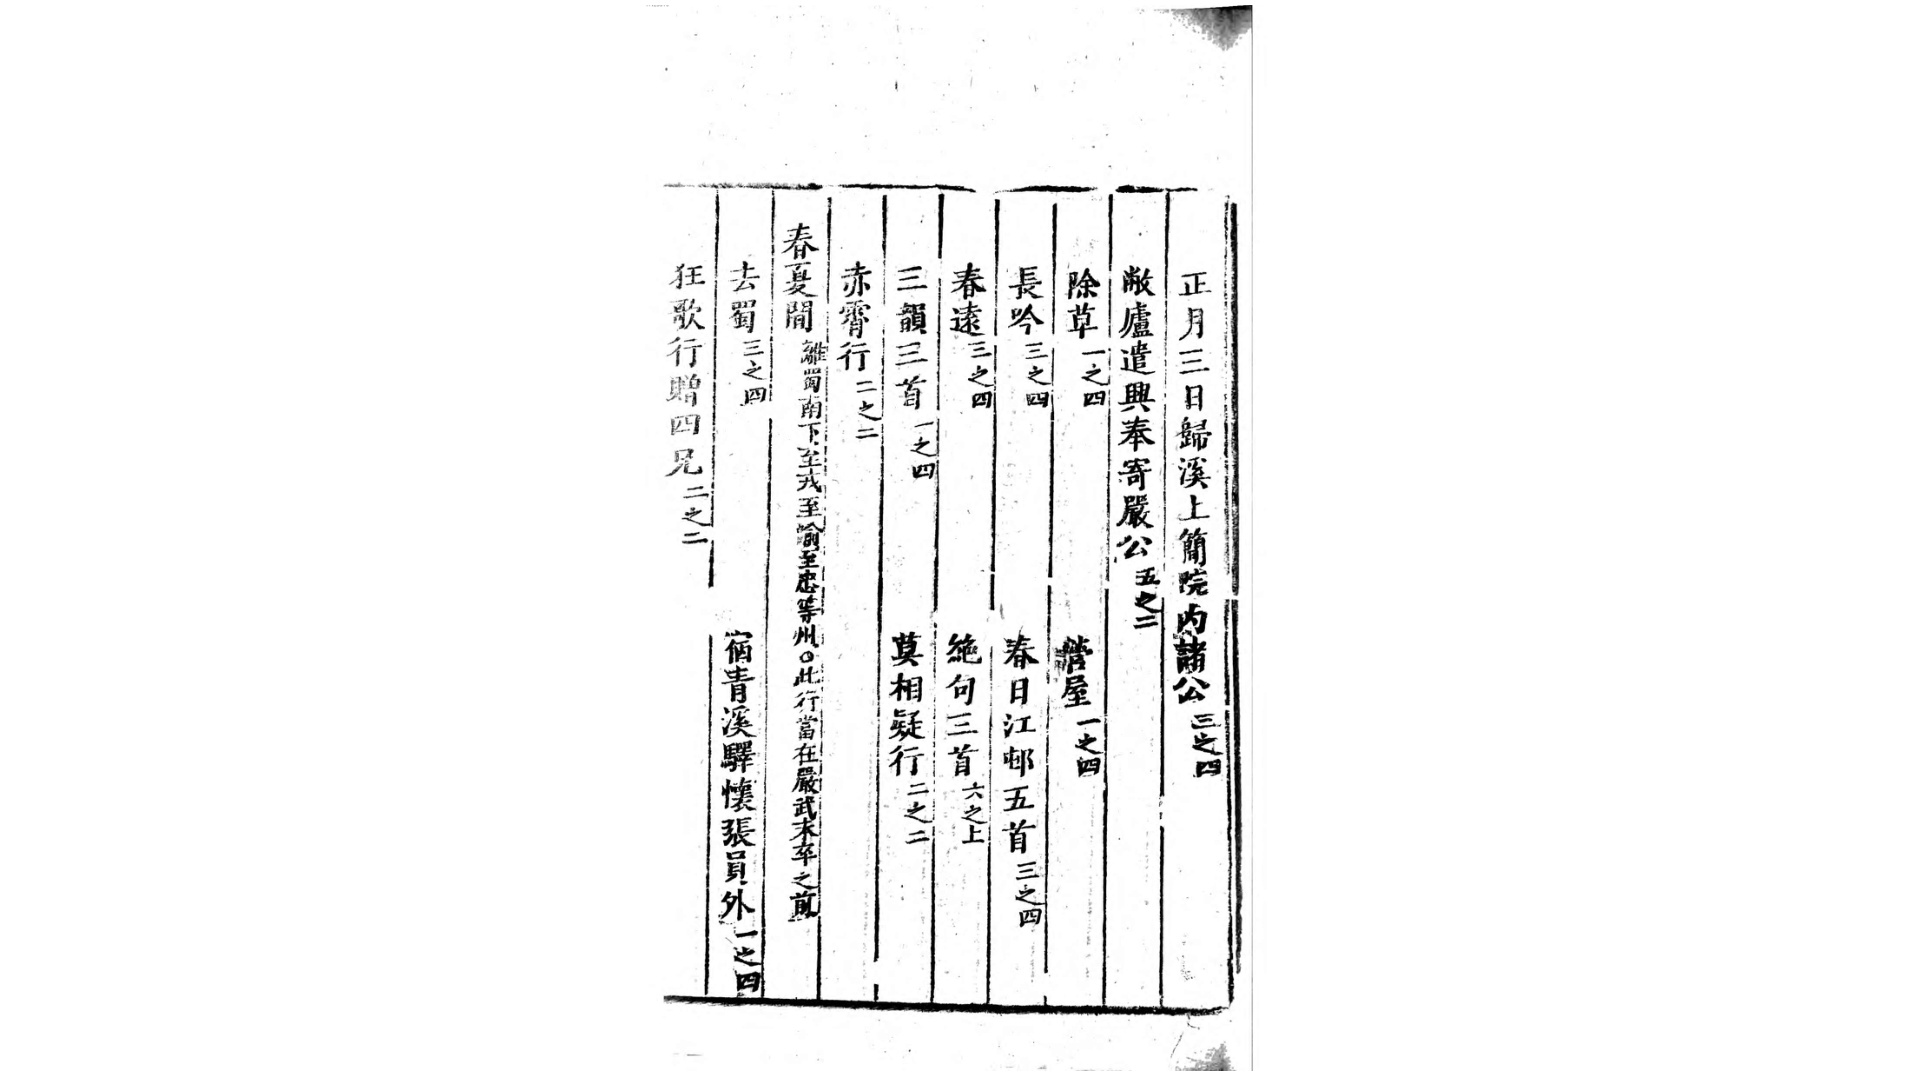 正月三日歸溪上簡院內諸公三之四
敝廬遣興奉寄嚴公五之二
除草一之四　營屋一之四
長吟三之四　春日江邨五首三之四
春遠三之四　絶句三首六之上
三韻三首一之四　莫相疑行二之二
赤霄行二之二
春夏間離蜀南下至戎至渝至忠等州○此行當在嚴武未卒之前
去蜀三之四　宿青溪驛懷張員外一之四
狂歌行贈四兄二之二